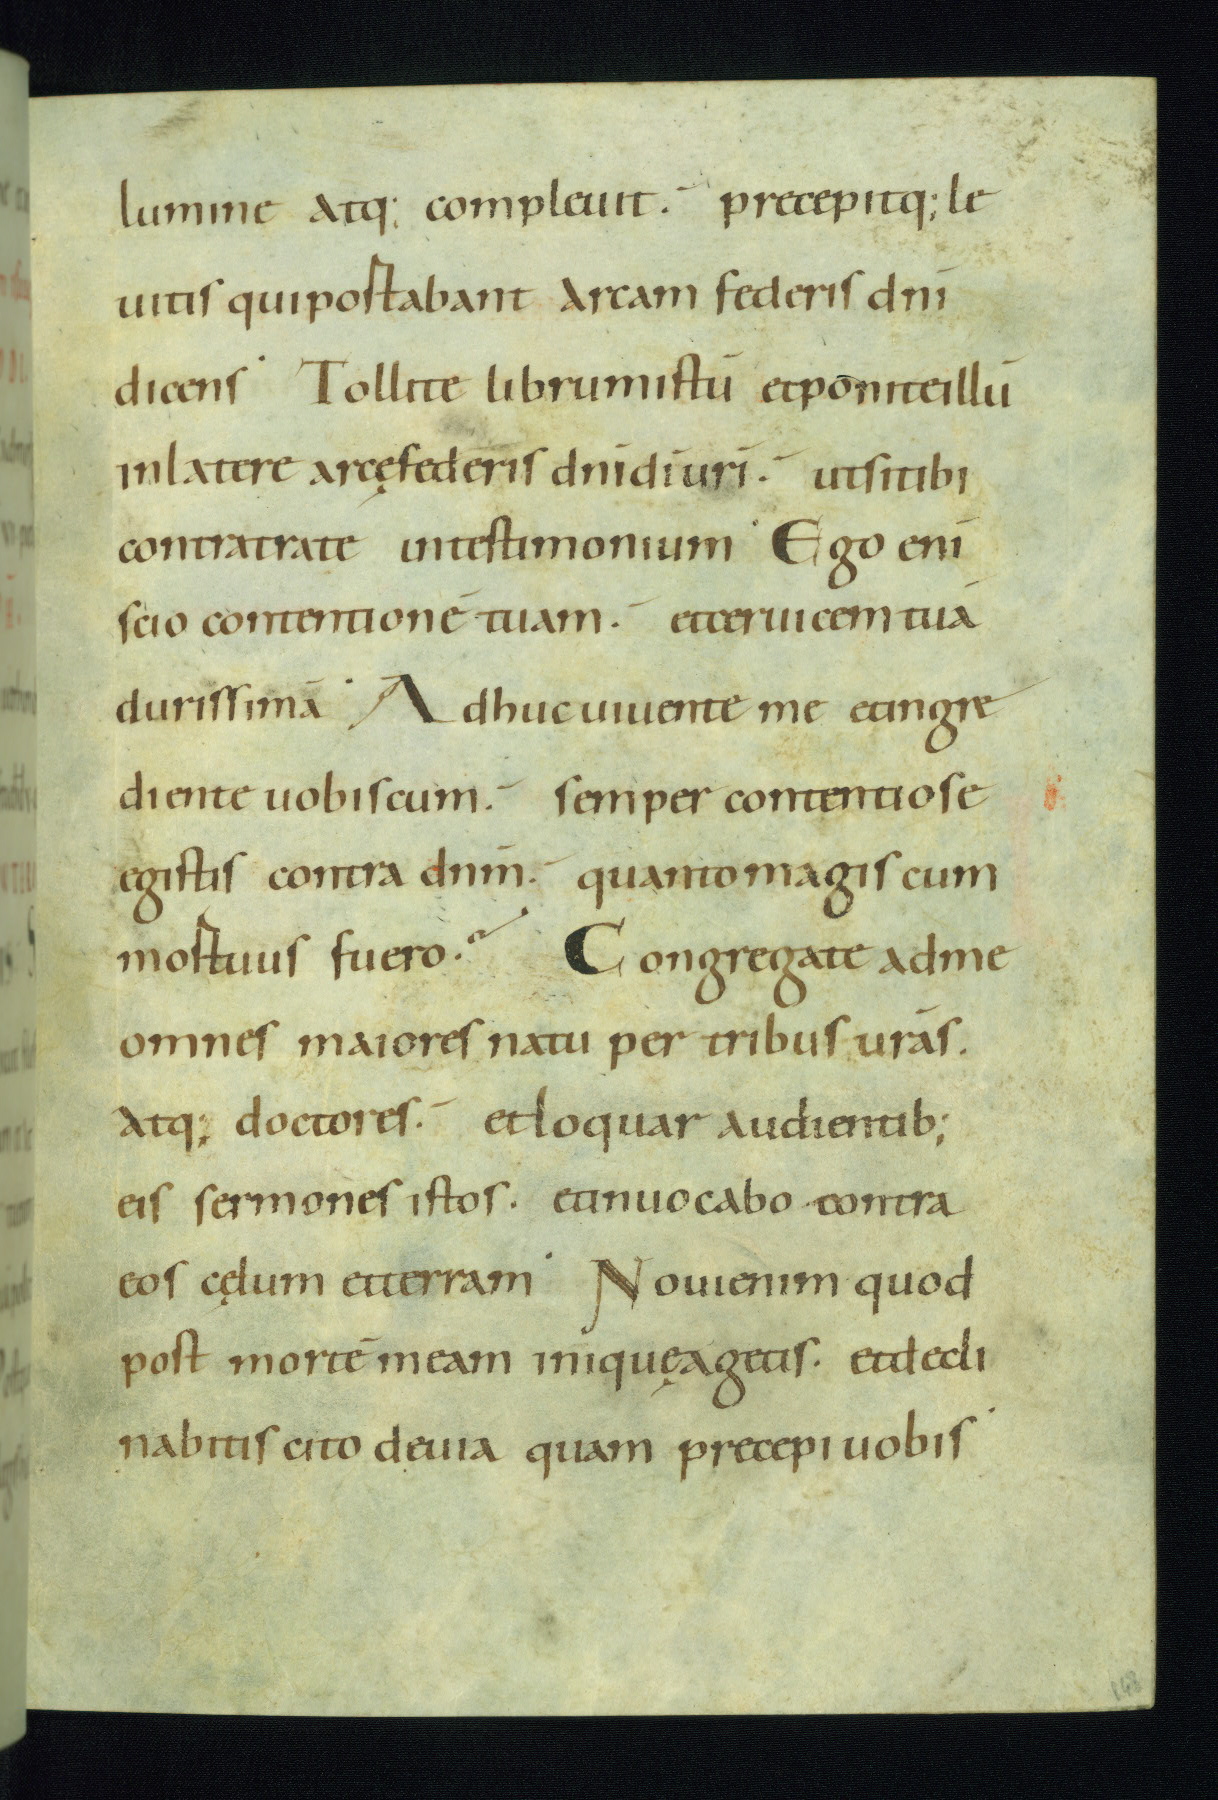 lumine atq; compleuit. precepitq; le
uitis qui portabant arcam federis dnī
dicens Tollite librum istū et ponite illū
in latere arcę federis dnī dī urī. ut sit ibi
contra trate in testimonium Ego enī
scio contentionē tuam. et ceruicem tuā
durissimā Adhuc uiuente me et ingre
diente uobiscum. semper contentiose
egistis contra dnm̄. quanto magis cum
mortuus fuero. Congregate ad me
omnes maiores natu per tribus urās.
atq; doctores. et loquar audientib;
eis sermones istos. et inuocabo contra
eos cęlum et terram Noui enim quod
post mortē meam iniquę agetis. et decli
nabitis cito de uia quam precepi uobis
148